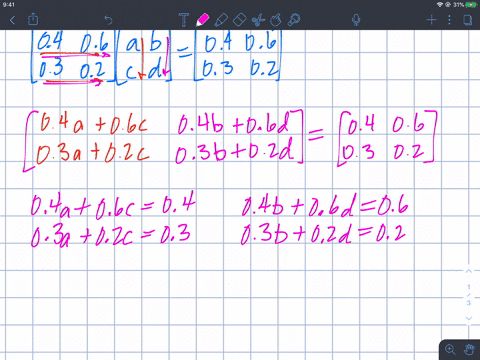 9:41 31%
[0.4 0.6] [a b] = [0.4 0.6]
[0.3 0.2] [c d] [0.3 0.2]
[0.4a + 0.6c 0.4b + 0.6d] = [0.4 0.6]
[0.3a + 0.2c 0.3b + 0.2d] [0.3 0.2]
0.4a + 0.6c = 0.4 0.4b + 0.6d = 0.6
0.3a + 0.2c = 0.3 0.3b + 0.2d = 0.2
1
3